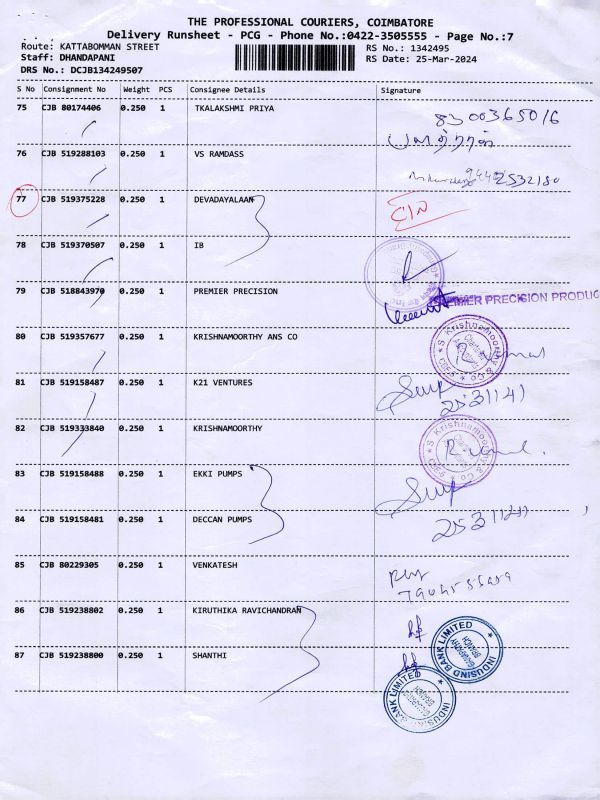 THE PROFESSIONAL COURIERS, COIMBATORE
Delivery Runsheet - PCG - Phone No.:0422-3505555 - Page No.:7
Route: KATTABOMMAN STREET RS No.: 1342495
Staff: DHANDAPANI RS Date: 25-Mar-2024
DRS No.: DCJB134249507
S No Consignment No Weight PCS Consignee Details Signature
75 CJB 80174406 0.250 1 TKALAKSHMI PRIYA 8300365016
76 CJB 519288103 0.250 1 VS RAMDASS
77 CJB 519375228 0.250 1 DEVADAYALAAN
78 CJB 519370507 0.250 1 IB
79 CJB 518843970 0.250 1 PREMIER PRECISION PREMIER PRECISION PRODUC
80 CJB 519357677 0.250 1 KRISHNAMOORTHY ANS CO S Krishnamoorthy & Co CBE-5
81 CJB 519158487 0.250 1 K21 VENTURES 2531141
82 CJB 519333840 0.250 1 KRISHNAMOORTHY S Krishnamoorthy & Co CBE-5
83 CJB 519158488 0.250 1 EKKI PUMPS
84 CJB 519158481 0.250 1 DECCAN PUMPS 2531141
85 CJB 80229305 0.250 1 VENKATESH
86 CJB 519238802 0.250 1 KIRUTHIKA RAVICHANDRAN INDUSIND BANK LIMITED BRANCH
87 CJB 519238800 0.250 1 SHANTHI BANK LIMITED BRANCH